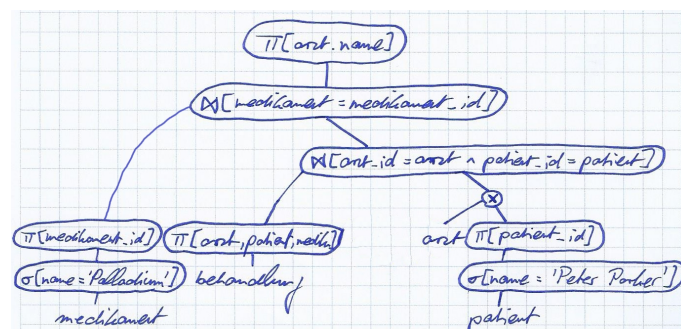 π[arzt.name]
⋈[medikament = medikament_id]
⋈[arzt_id = arzt ∧ patient_id = patient]
×
π[medikament_id] π[arzt, patient, medik.] arzt π[patient_id]
σ[name = 'Palladium'] behandlung σ[name = 'Peter Parker']
medikament patient